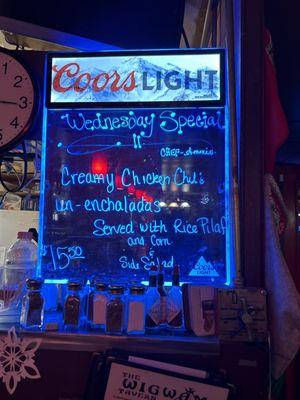 Coors LIGHT
Wednesday Special
"
CHEF-Annie
Creamy Chicken Chili
un-enchaladas
Served with Rice Pilaf
and Corn
& Side Salad
$15.50
Coors
LIGHT
THE
WIGWAM
TAVERN
1
2
3
4
5